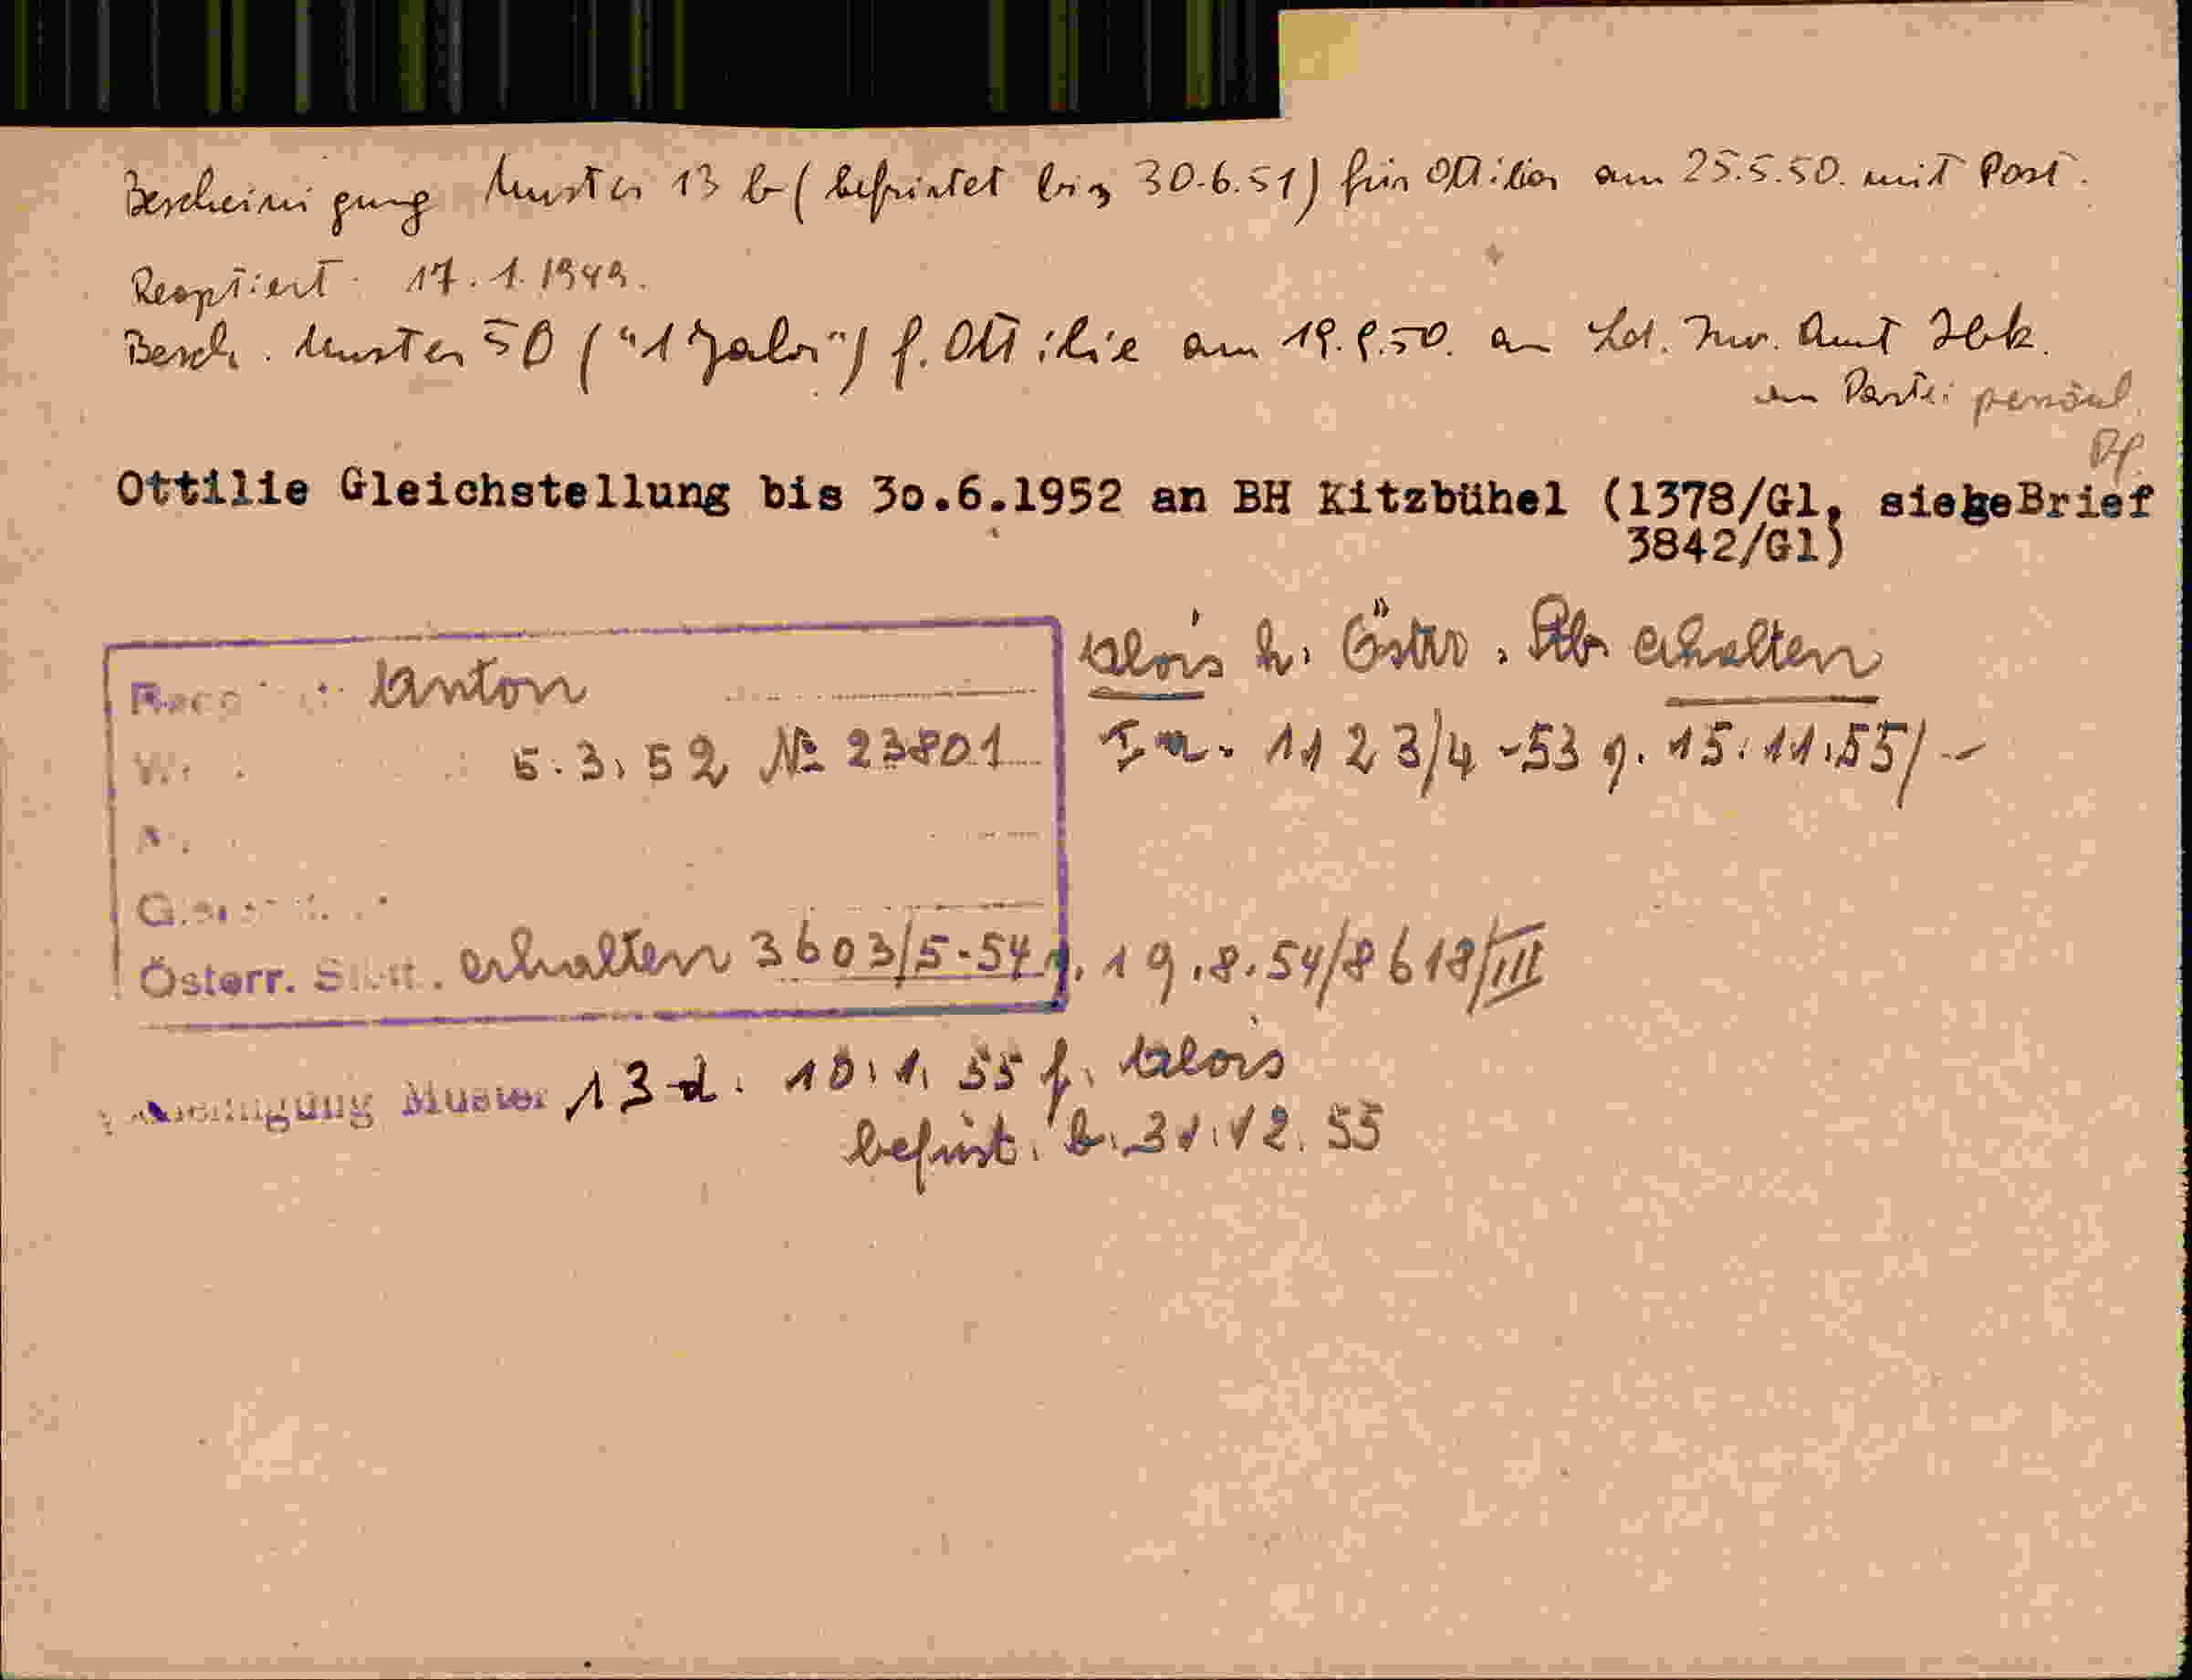 Bescheinigung Muster 13 b (befristet bis 30.6.51) für Ottilie am 25.5.50. mit Post.
Reoptiert 17.1.1949.
Besch. Muster 50 ("1 Jahr") f. Ottilie am 19.9.50. an Ld. Inv. Amt Ibk.
an Partei persönl.
Ottilie Gleichstellung bis 30.6.1952 an BH Kitzbühel (1378/Gl, siehe Brief
3842/Gl)
Anton
5.3.52 № 23801
Österr. Stb. erhalten 3603/5-54 v. 19.8.54/8618/III
Alois h. Östr. Stb. erhalten
Ia. 1123/4-53 v. 15.11.55/-
Bescheinigung Muster 13 d. 10.1.55 f. Alois
befrist. b. 31.12.55